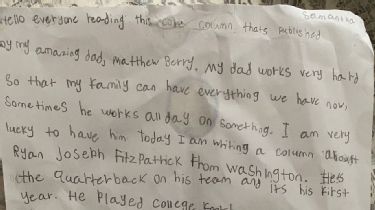 Samantha
Hello everyone reading this column thats published
by my amazing dad, matthew Berry. My dad works very hard
So that my family can have everything we have now,
Sometimes he works all day on something. I am very
lucky to have him today I am writing a column about
Ryan Joseph FitzPatrick from washington. He's
the quarterback on his team and its his first
year. He Played college